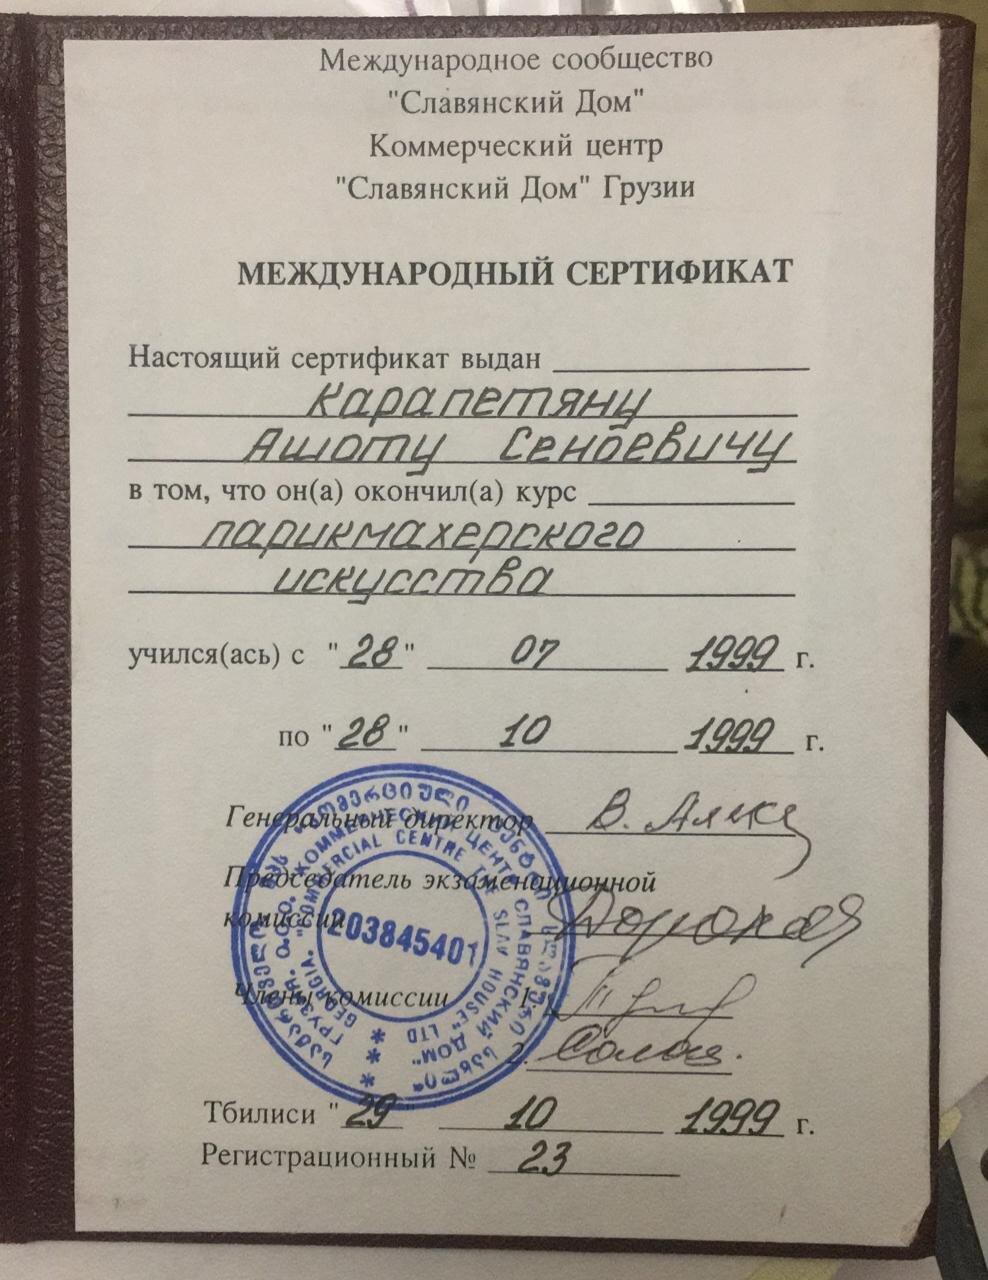 Международное сообщество
"Славянский Дом"
Коммерческий центр
"Славянский Дом" Грузии
МЕЖДУНАРОДНЫЙ СЕРТИФИКАТ
Настоящий сертификат выдан
Карапетяну
Ашоту Сенбевичу
в том, что он(а) окончил(а) курс
парикмахерского
искусства
учился(ась) с "28" 07 1999 г.
по "28" 10 1999 г.
Генеральный директор
Председатель экзаменационной
комиссии
Члены комиссии 1.
2.
ГРУЗИЯ. О.О.О. "КОММЕРЧЕСКИЙ ЦЕНТР СЛАВЯНСКИЙ ДОМ"
GEORGIA. "COMMERCIAL CENTRE THE SLAV HOUSE" LTD
203845401
Тбилиси "29" 10 1999 г.
Регистрационный № 23